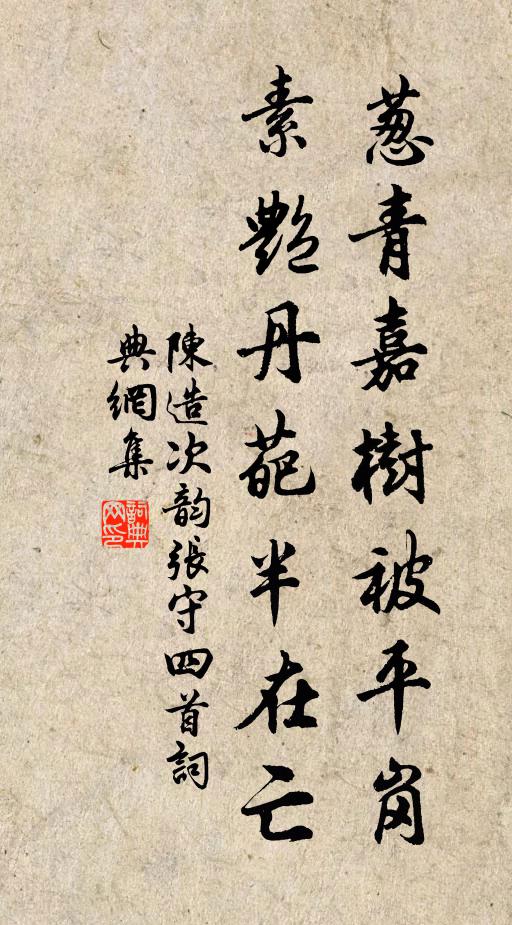 葱青嘉樹被平岗
素艷丹葩半在亡
陳造次韵張守四首詞
典網集
詞典网印